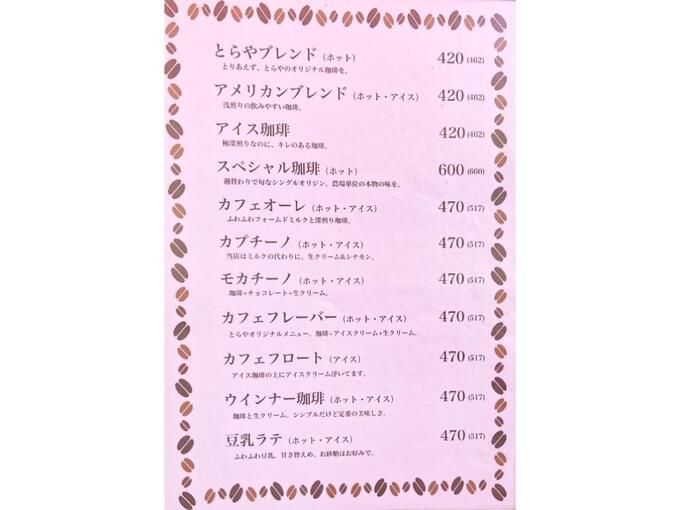 とらやブレンド（ホット） 420 (462)
とりあえず、とらやのオリジナル珈琲を。
アメリカンブレンド（ホット・アイス） 420 (462)
浅煎りの飲みやすい珈琲。
アイス珈琲 420 (462)
極深煎りなのに、キレのある珈琲。
スペシャル珈琲（ホット） 600 (660)
週替わりで旬なシングルオリジン。農場単位の本物の味を。
カフェオーレ（ホット・アイス） 470 (517)
ふわふわフォームドミルクと深煎り珈琲。
カプチーノ（ホット・アイス） 470 (517)
当店はミルクの代わりに、生クリーム&シナモン。
モカチーノ（ホット・アイス） 470 (517)
珈琲+チョコレート+生クリーム。
カフェフレーバー（ホット・アイス） 470 (517)
とらやオリジナルメニュー。珈琲+アイスクリーム+生クリーム。
カフェフロート（アイス） 470 (517)
アイス珈琲の上にアイスクリーム浮いてます。
ウインナー珈琲（ホット・アイス） 470 (517)
珈琲と生クリーム。シンプルだけど定番の美味しさ。
豆乳ラテ（ホット・アイス） 470 (517)
ふわふわ豆乳。甘さ控えめ、お砂糖はお好みで。